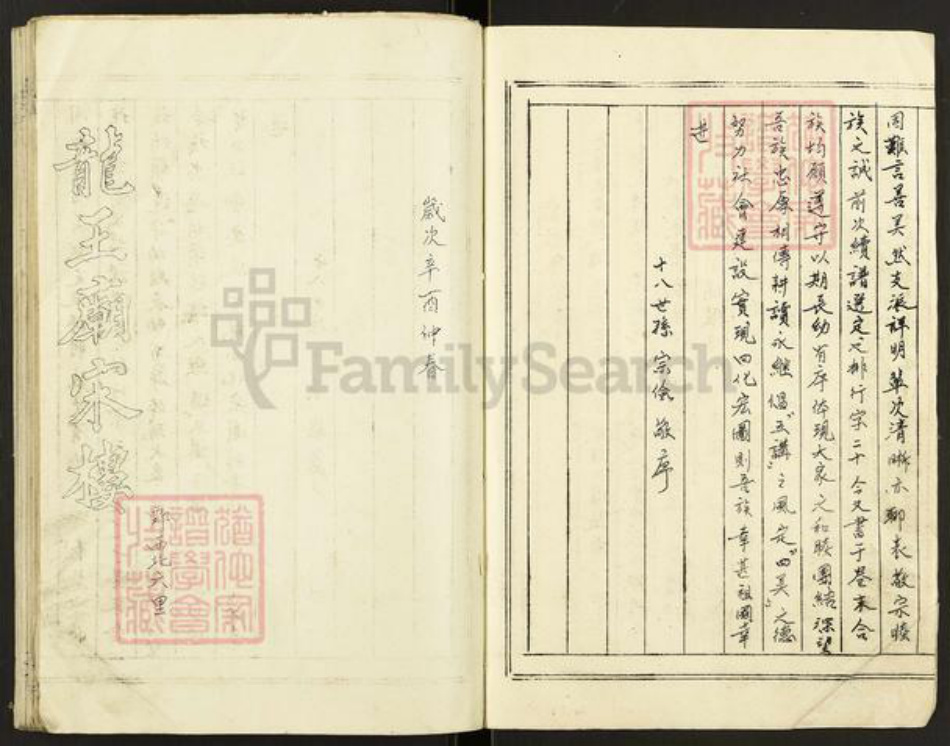 固難言善美然支派詳明輩次清晰亦聊表敬宗睦
族之誠前次續譜選定之排行字二十今又書于卷末合
族均願遵守以期長幼有序体現大家之和睦團結深望
吾族忠厚相傳耕讀永継倡“五講”之風定“四美”之德
努力社會建設實現四化宏圖則吾族幸甚祖國幸
甚
十八世孫 宗儉 敬序
歲次辛酉仲春
龍王廟宋樓
西北六里
FamilySearch